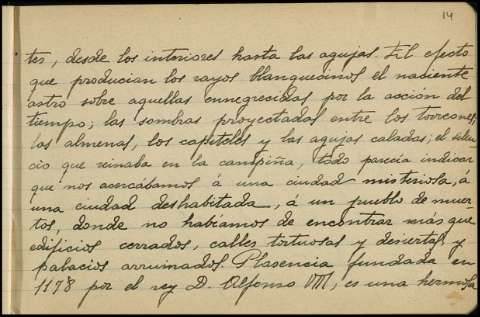 14
tes, desde los interiores hasta las agujas. El efecto
que producian los rayos blanquecinos el naciente
astro sobre aquellas ennegrecidas por la acción del
tiempo; las sombras proyectadas entre los torreones,
las almenas, los capiteles y las agujas caladas; el silen
cio que reinaba en la campiña, todo parecia indicar
que nos acercabamos á una ciudad misteriosa, á
una ciudad deshabitada, á un pueblo de muer
tos, donde no habíamos de encontrar más que
edificios cerrados, calles tortuosas y desiertas y
palacios arruinados. Plasencia fundada en
1178 por el rey D. Alfonso VIII, es una hermosa